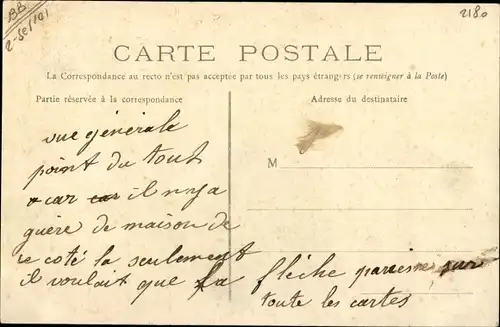 BB
2180
CARTE POSTALE
La Correspondance au recto n'est pas acceptée par tous les pays étrangers (se renseigner à la Poste)
Partie réservée à la correspondance
Adresse du destinataire
M
vue générale
point du tout
car il n'y a
guère de maison de
ce coté la seulement
il voulait que la flèche paraisse sur
toute les cartes